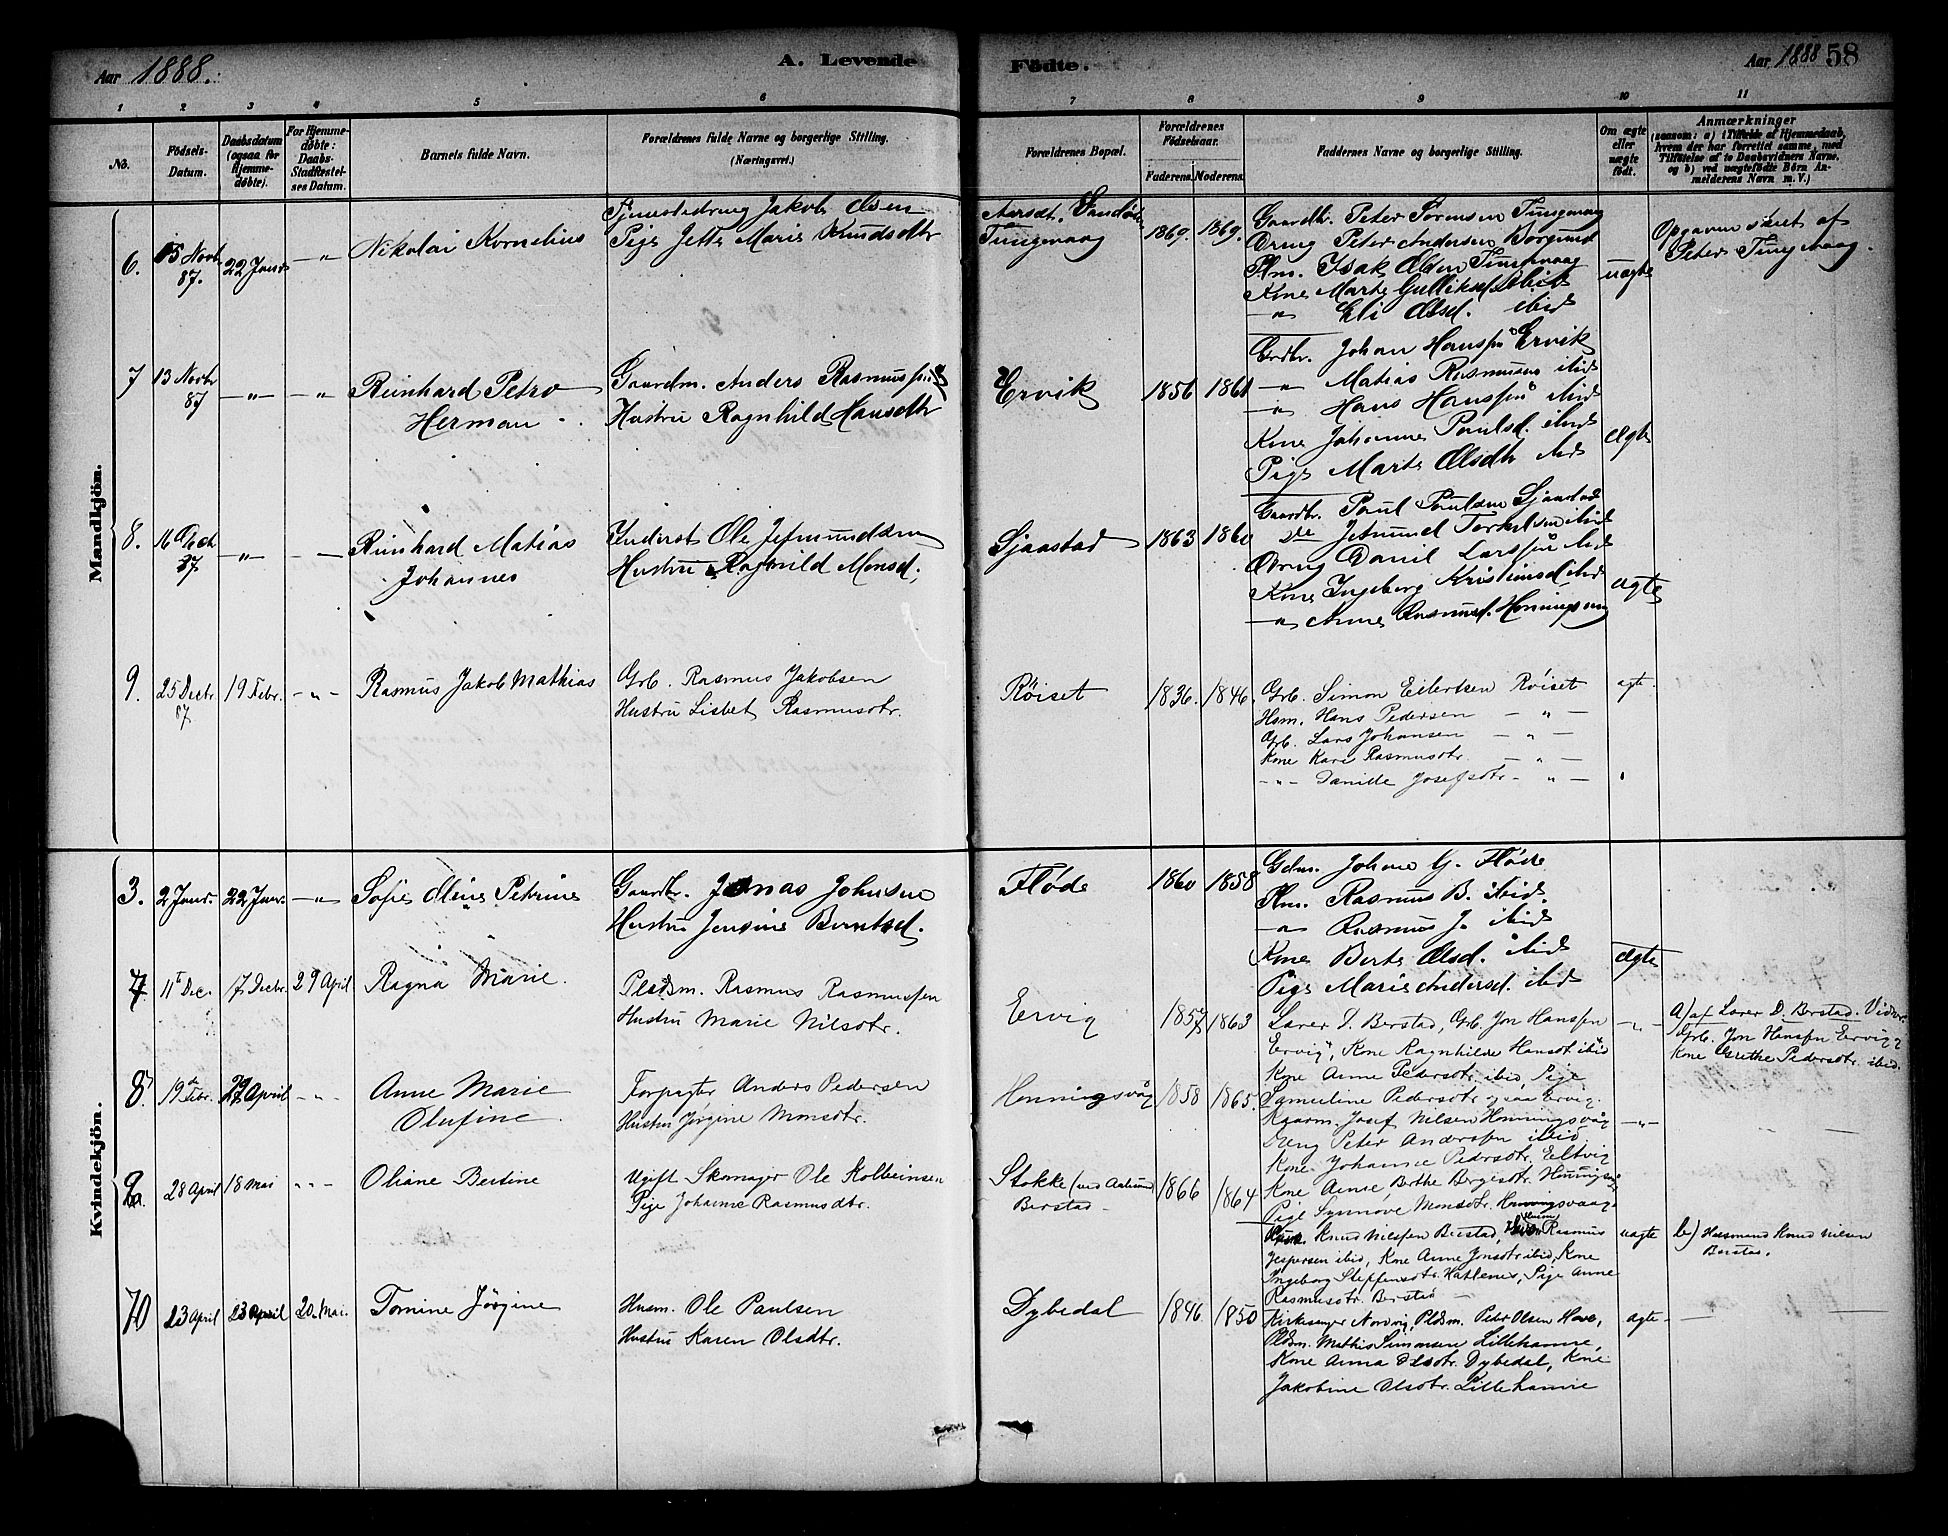 Aar 1888.
A. Levende
Fødte.
Aar 1888 58
1 2 3 4 5 6 7 8 9 10 11
No.
Fødsels-
Datum.
Daabsdatum
(ogsaa for
Hjemme-
døbte).
For Hjemme-
døbte:
Daabs-
Stadfæstel-
ses Datum.
Barnets fulde Navn.
Forældrenes fulde Navne og borgerlige Stilling.
(Næringsvei.)
Forældrenes Bopæl.
Forældrenes
Fødselsaar.
Faderens. Moderens.
Faddernes Navne og borgerlige Stilling.
Om ægte
eller
uægte
født.
Anmærkninger
(saasom: a) i Tilfælde af Hjemmedaab,
hvem der har forrettet samme, med
Tilføielse af to Daabsvidners Navne,
og b) ved uægtefødte Børn An-
melderens Navn m. V.)
Mandkjøn.
6. 15 Novb 87. 22 Janr. — " Nikolai Kornelius
Tjenestedreng Jakob Olsen
Pige Jette Marie Knudsdtr
Tungevaag
1869. 1869.
Gaardbr. Peter Sørensen Tungevaag
Dreng Peter Andersen Borgund
Plm. Isak Olsen Tungevaag
Kone Marte Gulliksd. ibid
— " Eli Olsd. ibid
uægte
Opgaven skeet af
Peter Tungevaag.
7 13 Novbr 87 — " — — " Reinhard Petro
Herman
Gaardm. Anders Rasmussen
Hustru Ragnhild Hansdtr
Ervik
1856 1861
Grdbr. Johan Hanssen Ervik
— " Matias Rasmusen ibid
— " Hans Hanssen ibid
Kone Johanne Paulsd. ibid
Pige Marte Olsdtr ibid
ægte
8. 16 Dech 87 — " — — " — Reinhard Matias
Johannes
Inderst Ole Jetmundsen
Hustru Ragnild Monsd.
Sjaastad
1863 1860
Gaardbr. Paul Paulsen Sjaastad
do Jetmund Torkelsen ibid
Dreng Daniel Larssen ibid
Kone Ingeborg Kristiansd ibid
— " Anne Rasmusd. Honningsvaag
ægte
9. 25 Decbr 87 19 Febr. — " — Rasmus Jakob Mathias
Grb. Rasmus Jakobsen
Hustru Lisbet Rasmusdtr.
Røiset
1836. 1846.
Grb. Simon Eilertsen Røiset
Hsm. Hans Pedersen — " —
Grb. Lars Johansen — " —
Kone Kari Rasmusdtr. — " —
— " — Danille Josefsdtr. — " —
ægte.
Kvindekjøn.
3. 2 Janr. 22 Janr. — " Sofie Oline Petrine
Gaardbr. Jonas Johnsen
Hustru Jensine Berntsd.
Fløde
1860 1858
Gdm. Johan G. Fløde
Plm. Rasmus B. ibid.
— " Rasmus J. ibid
Kone Berte Olsd. ibid
Pige Marie Andersd. ibid
ægte
7. 11te Dec. 17 Decbr. 29 April Ragna Marie.
Pladsm. Rasmus Rasmussen
Hustru Marie Nilsdtr.
Ervig
1857 1863
Lærer D. Berstad, Grb. Jon Hansen
Ervig, Kone Ragnhilde Hansdt ibid
Kone Anne Pedersdtr. ibid, Pige
Samueline Pedersdtr. ogsaa Ervig.
— " —
a) af Lærer D. Berstad. Vidner
Grb. Jon Hansen Ervig,
Kone Grethe Pedersdtr. ibid.
8. 19de Febr. 29 April — " — Anne Marie
Olufine.
Forpagter Anders Pedersen
Hustru Jørgine Monsdtr.
Honningsvåg
1858 1865.
Gaarm. Josef Nilsen Honningsvåg
Dreng Peter Andersen ibid
Kone Johanne Pedersdtr. Eltvig
Kone Anne Berthe Børgesdtr. Honningsvåg
Pige Synnøve Monsdtr. Honningsvaag
— " —
9. 28 April 18 Mai — " — Oliane Bertine
Ugift Skomager Ole Kolbeinsen
Pige Johanne Rasmusdtr.
Stokke (ved Aalesund)
Berstad
1866 1864
Knud Nilssen Berstad, Husm Rasmus
Jespersen ibid, Kone Anne Jonsdtr ibid, Kone
Ingeborg Steffensdtr. Hatlenes, Pige Anne
Rasmusdtr. Berstad
uægte
b) Husmand Knud Nilsen
Berstad.
10 23 April 23 April 20. Mai. Tomine Jørgine
Husm. Ole Paulsen
Hustru Karen Olsdtr.
Dybedal
1846. 1850
Kirkesanger Nordvig, Pldsm. Peter Olsen Hove,
Pldsm. Mathis Simonsen Lillehamre,
Kone Anna Olsdtr. Dybedal, Kone
Jakobine Olsdtr. Lillehamre
ægte. —